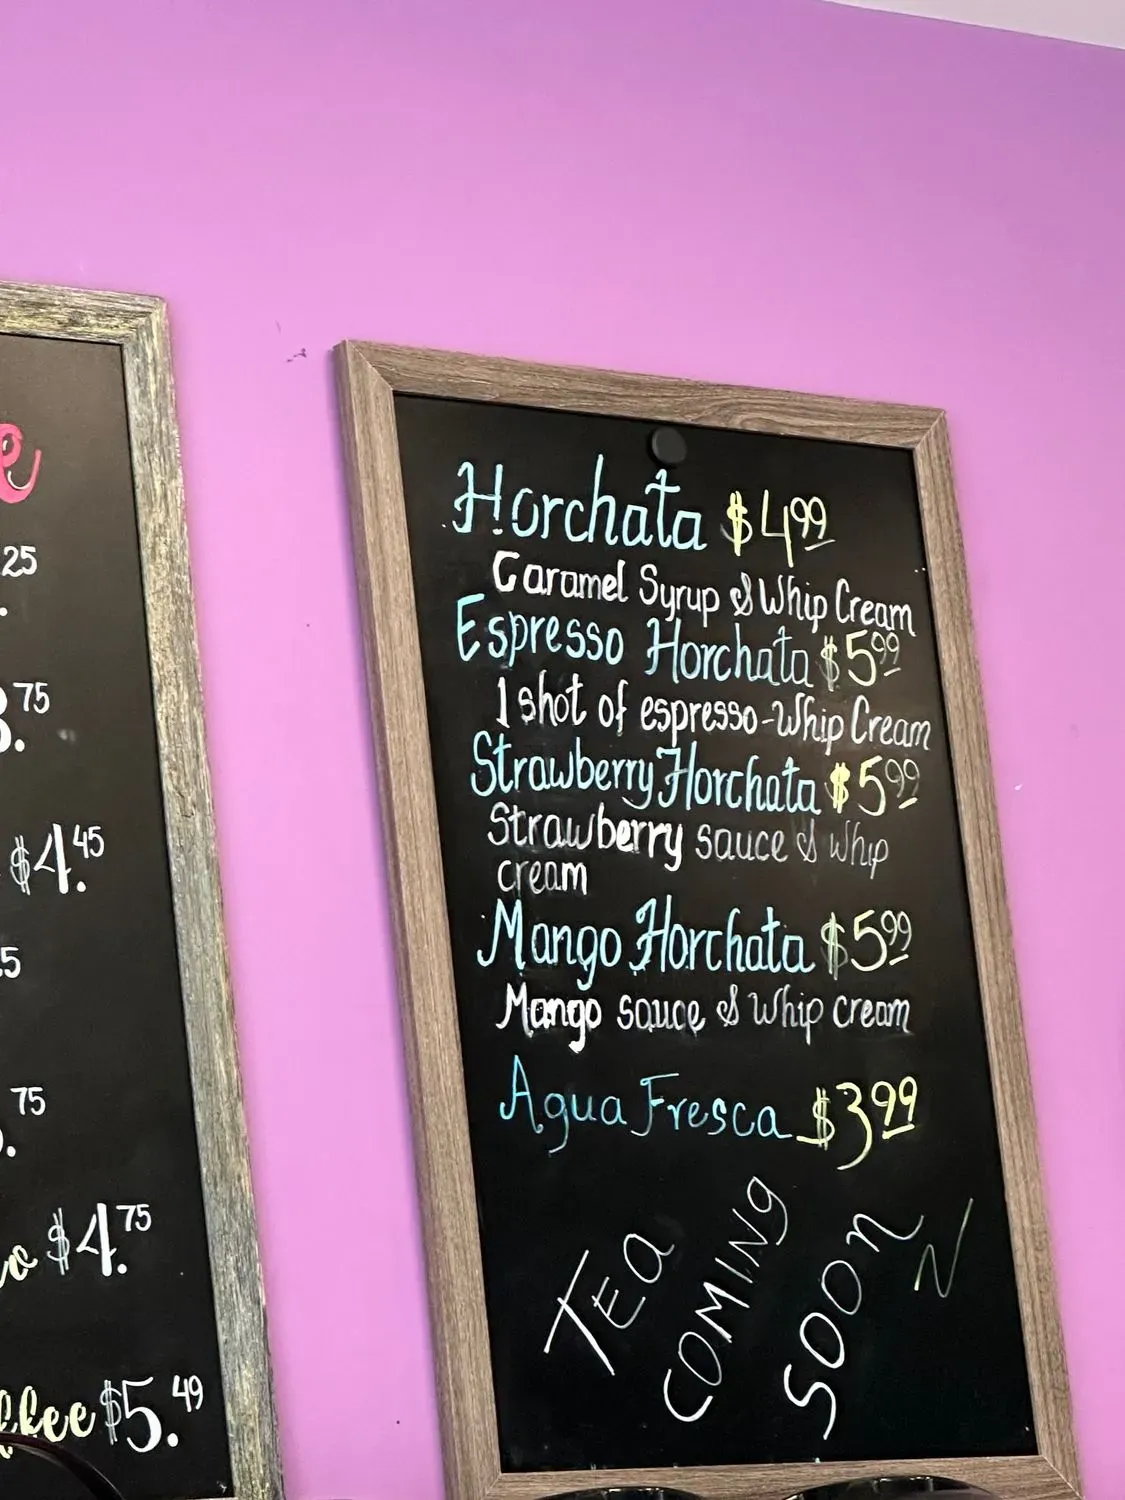 e
.25
.75
$4.45
.75
$4.75
ffee $5.49
Horchata $4.99
Caramel Syrup & Whip Cream
Espresso Horchata $5.99
1 shot of espresso-Whip Cream
Strawberry Horchata $5.99
Strawberry sauce & Whip
cream
Mango Horchata $5.99
Mango sauce & Whip cream
Agua Fresca $3.99
TEA
COMING
SOON